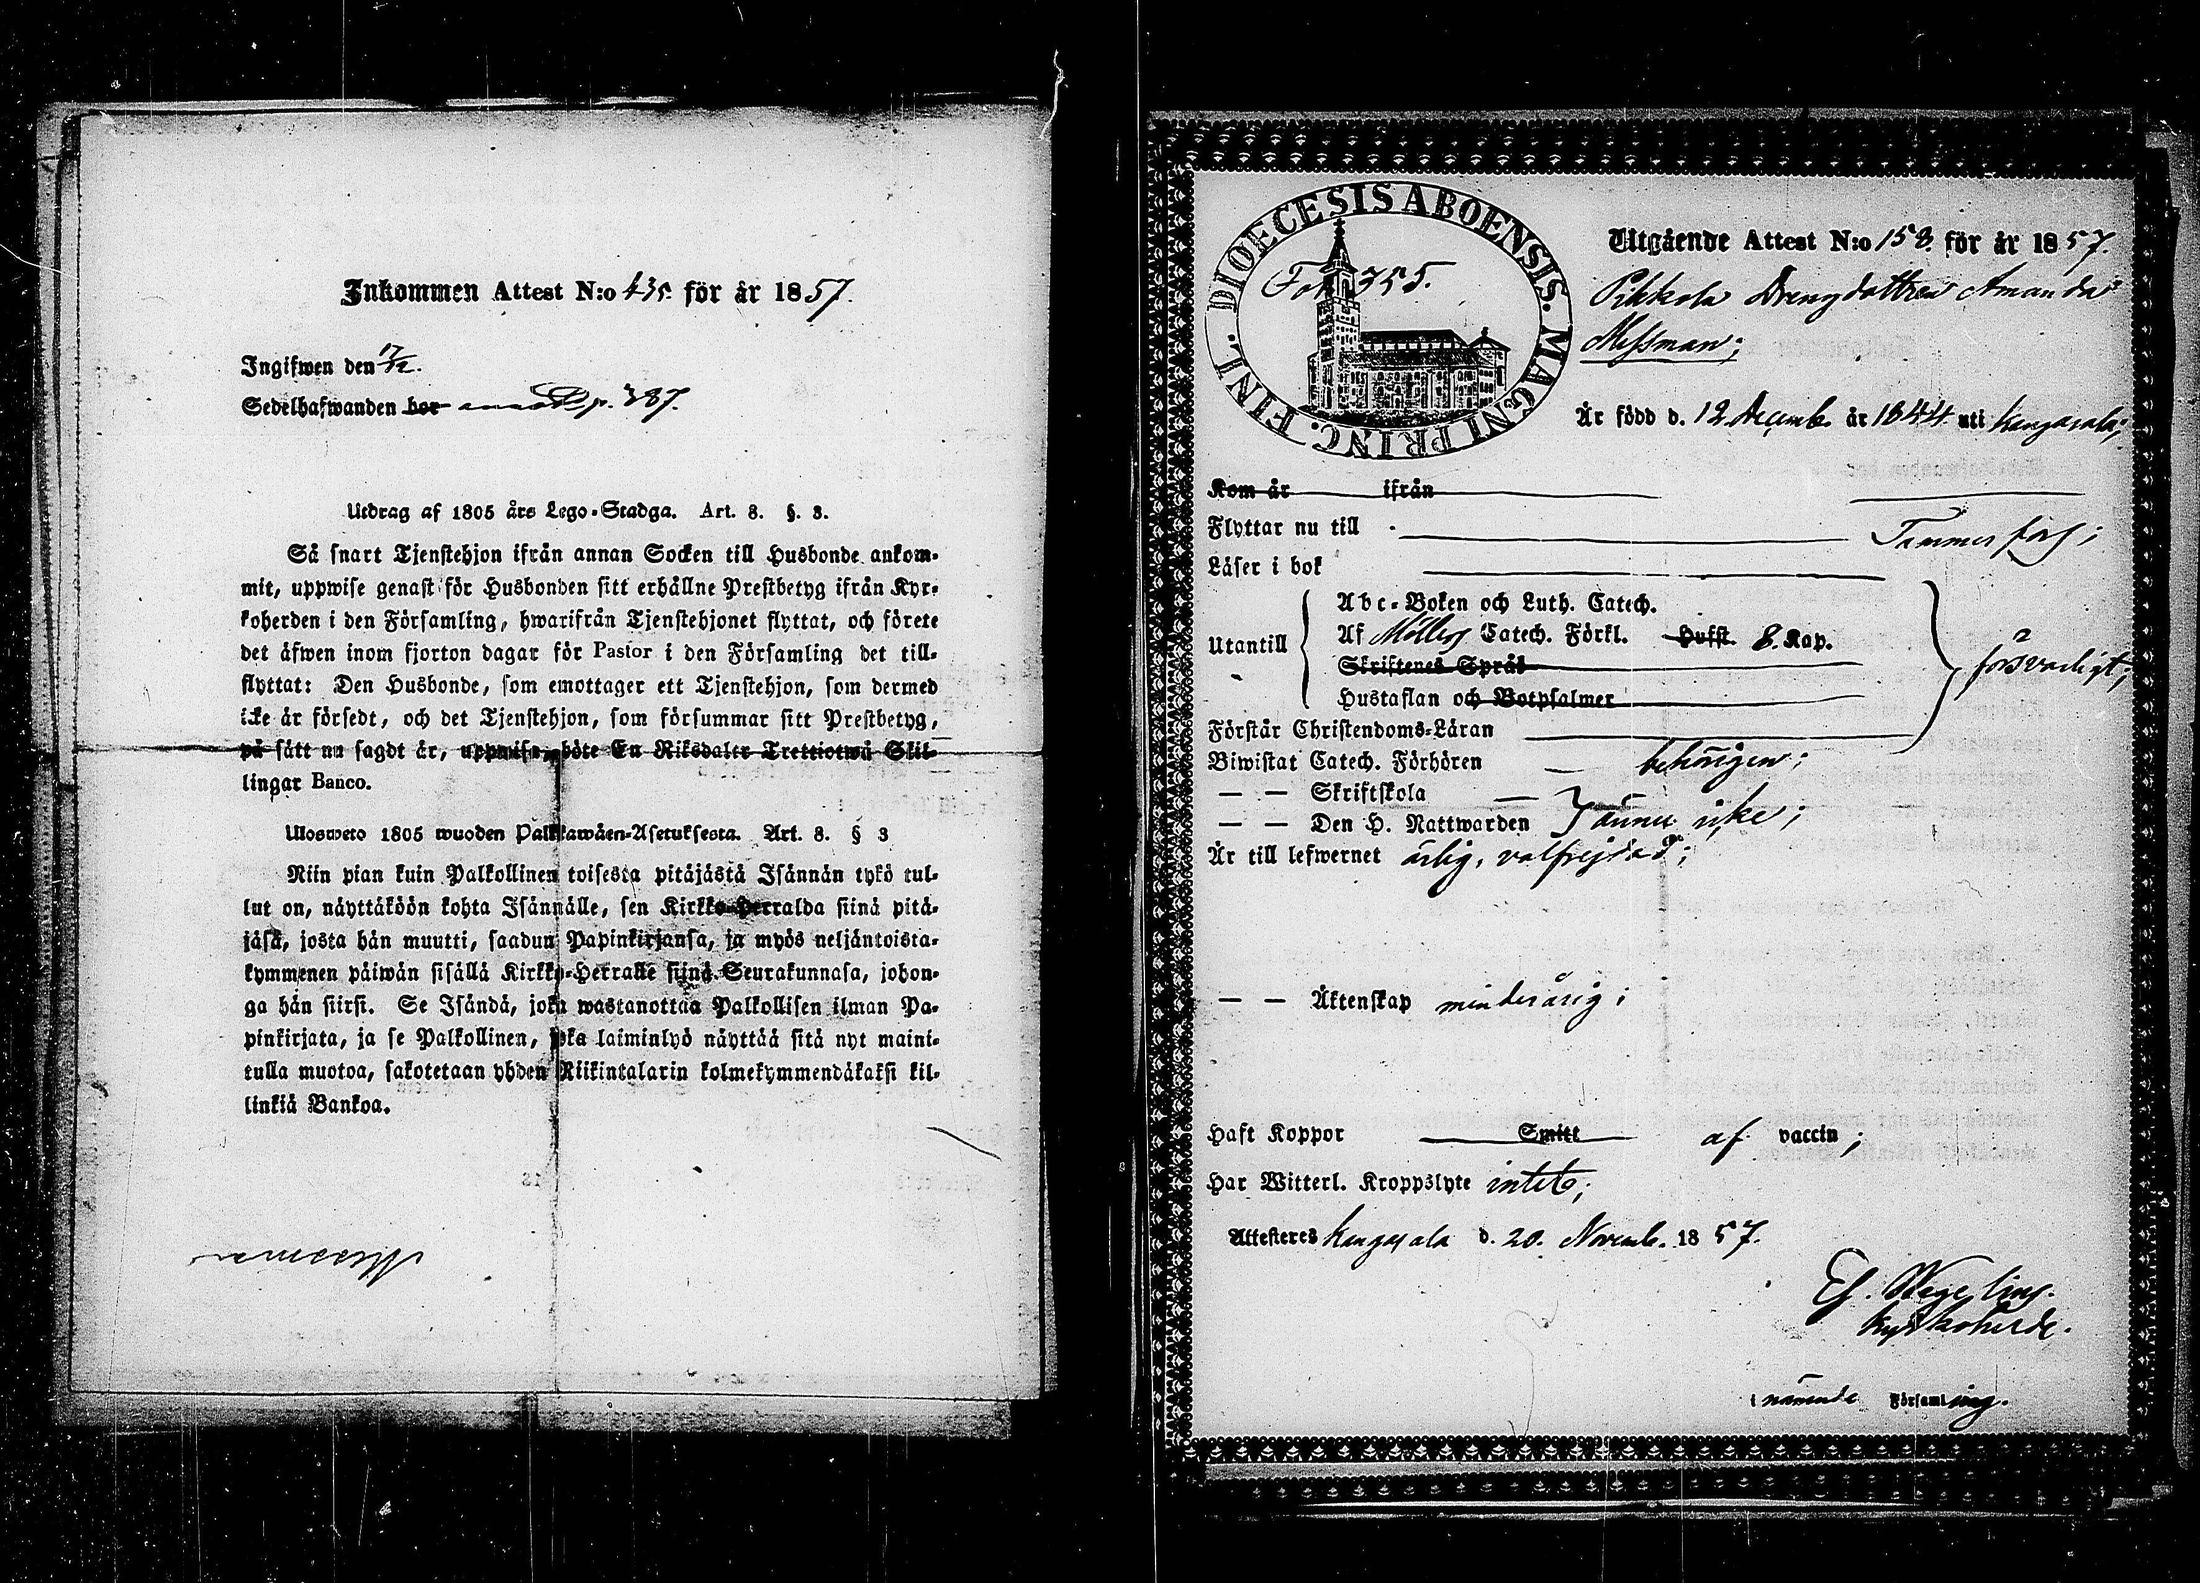 Inkommen Attest N:o 435. för år 1857.
Ingifwen den 17/12.
Sedelhafwanden bor p. 387.
Utdrag af 1805 års Lego-Stadga. Art. 8. §. 3.
Så snart Tjenstehjon ifrån annan Socken till Husbonde ankom-
mit, uppwise genast för Husbonden sitt erhållne Prestbetyg ifrån Kyr-
koherden i den Församling, hwarifrån Tjenstehjonet flyttat, och förete
det äfwen inom fjorton dagar för Pastor i den Församling det till-
flyttat: Den Husbonde, som emottager ett Tjenstehjon, som dermed
icke är försedt, och det Tjenstehjon, som försummar sitt Prestbetyg,
på sätt nu sagdt är, uppwisa, böte En Riksdaler Trettiotwå Skil-
lingar Banco.
Ulosweto 1805 wuoden Palkkawäen-Asetuksesta. Art. 8. § 3
Niin pian kuin Palkollinen toisesta pitäjästä Isännän tykö tul-
lut on, näyttäköön kohta Isännälle, sen Kirkko-Herralda siinä pitä-
jäsä, josta hän muutti, saadun Papinkirjansa, ja myös neljäntoista-
kymmenen päiwän sisällä Kirkko-Herralle siinä Seurakunnasa, johon-
ga hän siirsi. Se Isändä, joka wastanottaa Palkollisen ilman Pa-
pinkirjata, ja se Palkollinen, joka laiminlyö näyttää sitä nyt maini-
tulla muotoa, sakotetaan yhden Riikintalarin kolmekymmendäkaksi kil-
linkiä Bankoa.
Messman
DIOECESIS ABOENSIS. MAGNI PRINC. FINL.
Fol. 355.
Utgående Attest N:o 158. för år 1857.
Pikkola Drengdottren Amanda
Messman;
Är född d. 12 Decemb. år 1844 uti Kangasala;
Kom år ifrån
Flyttar nu till Tammerfors;
Läser i bok
Utantill
Abc-Boken och Luth. Catech.
Af Möllers Catech. Förkl. Hufst. 8. Kap.
Skriftenes Språk
Hustaflan och Botpsalmer
försvarligt;
Förstår Christendoms-Läran
Biwistat Catech. Förhören behörigen;
— — Skriftskola
— — Den H. Nattwarden ännu icke;
Är till lefwernet ärlig, välfrejdad;
— — Äktenskap minderårig;
Haft Koppor Smitt af vaccin;
Har Witterl. Kroppslyte intet;
Attesteres Kangasala d. 20. Novemb. 1857.
Ef. Wegelius.
Kyrkoherde.
i nämnde Församling.